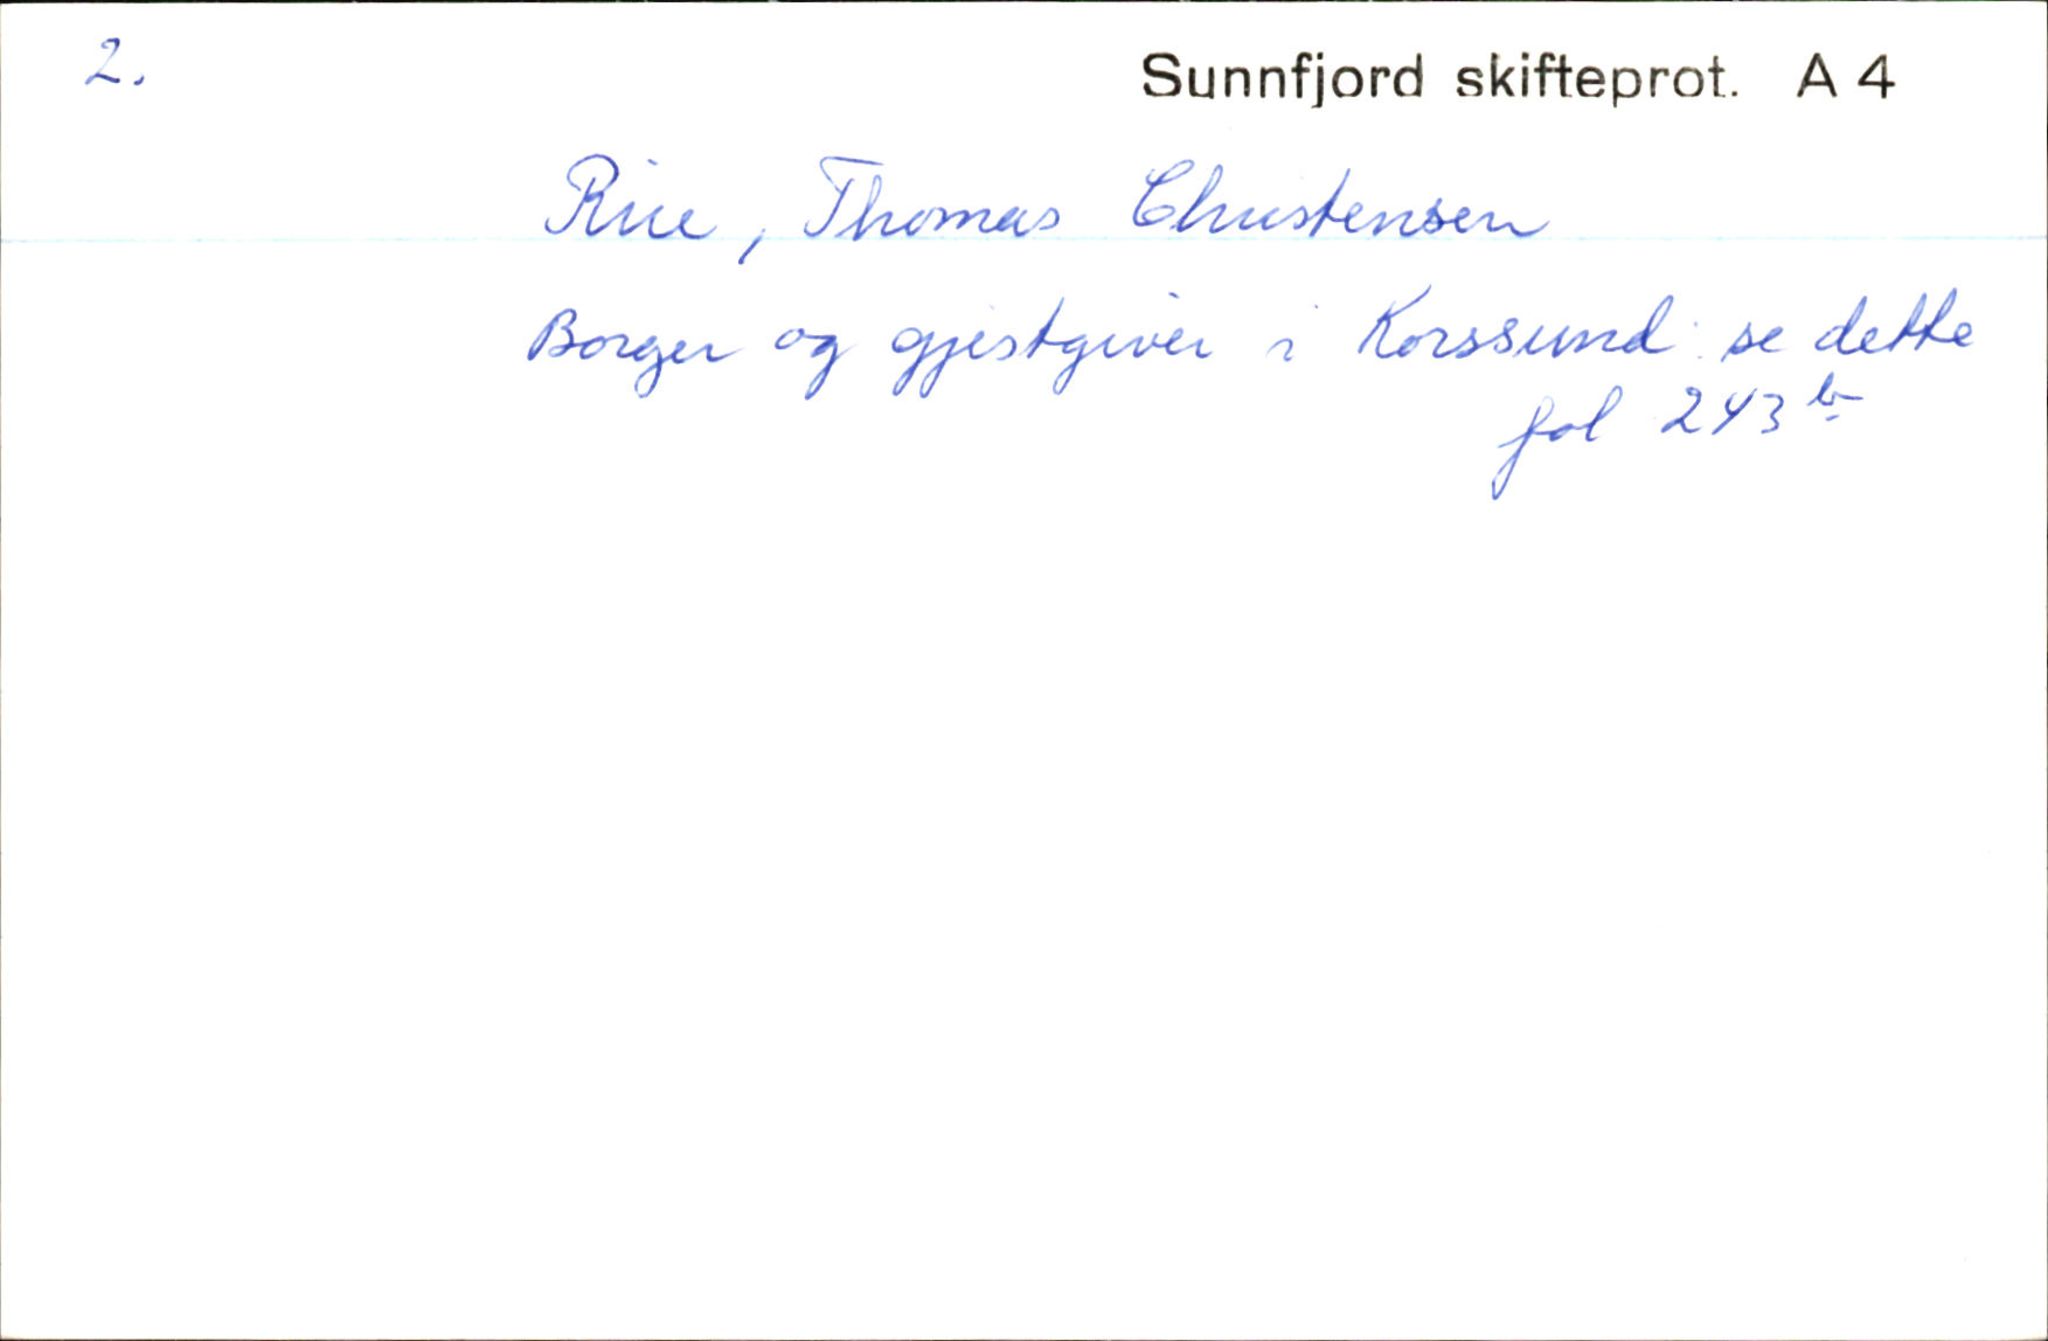 2.
Sunnfjord skifteprot. A 4
Rise, Thomas Christensen
Borger og gjestgiver i Korssund: se dette
fol 243 b